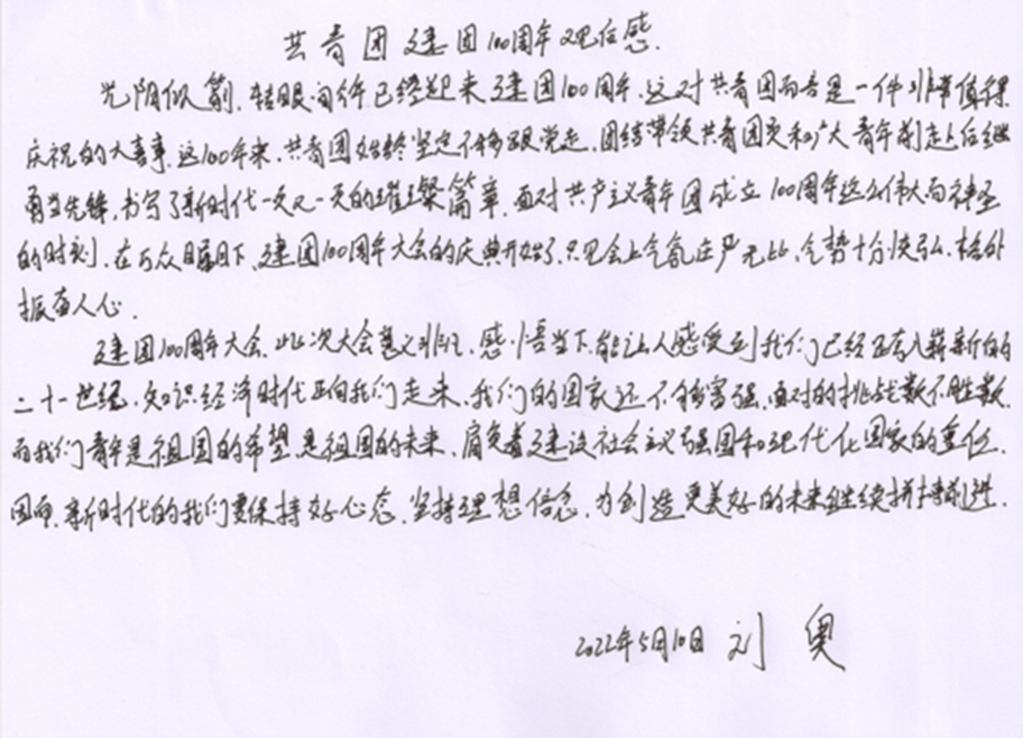 共青团建团100周年观后感.
光阴似箭,转眼间今年已终迎来建团100周年,这对共青团而言是一件非常值得
庆祝的大喜事.这100年来,共青团始终坚定不移跟党走,团结带领共青团员和广大青年前赴后继
勇当先锋,书写了新时代一页又一页的璀璨篇章.面对共产主义青年团成立100周年这么伟大而神圣
的时刻,在万众瞩目下,建团100周年大会的庆典开始了,只见会上气氛庄严无比,气势十分恢弘,格外
振奋人心.
建团100周年大会,此次大会意义非凡,感悟当下,能让人感受到我们已经迈入崭新的
二十一世纪,知识经济时代正向我们走来,我们的国家还不够富强,面对的挑战数不胜数,
而我们青年是祖国的希望,是祖国的未来,肩负着建设社会主义强国和现代化国家的重任.
因而,新时代的我们要保持好心态,坚持理想信念,为创造更美好的未来继续拼搏前进.
2022年5月10日 刘奥